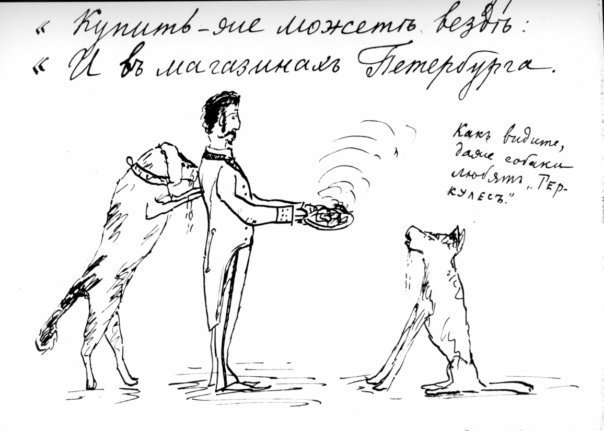 « Купить-же можетъ вездѣ:
« И въ магазинахъ Петербурга.
Какъ видите,
даже собаки
любятъ „Гер-
кулесъ."